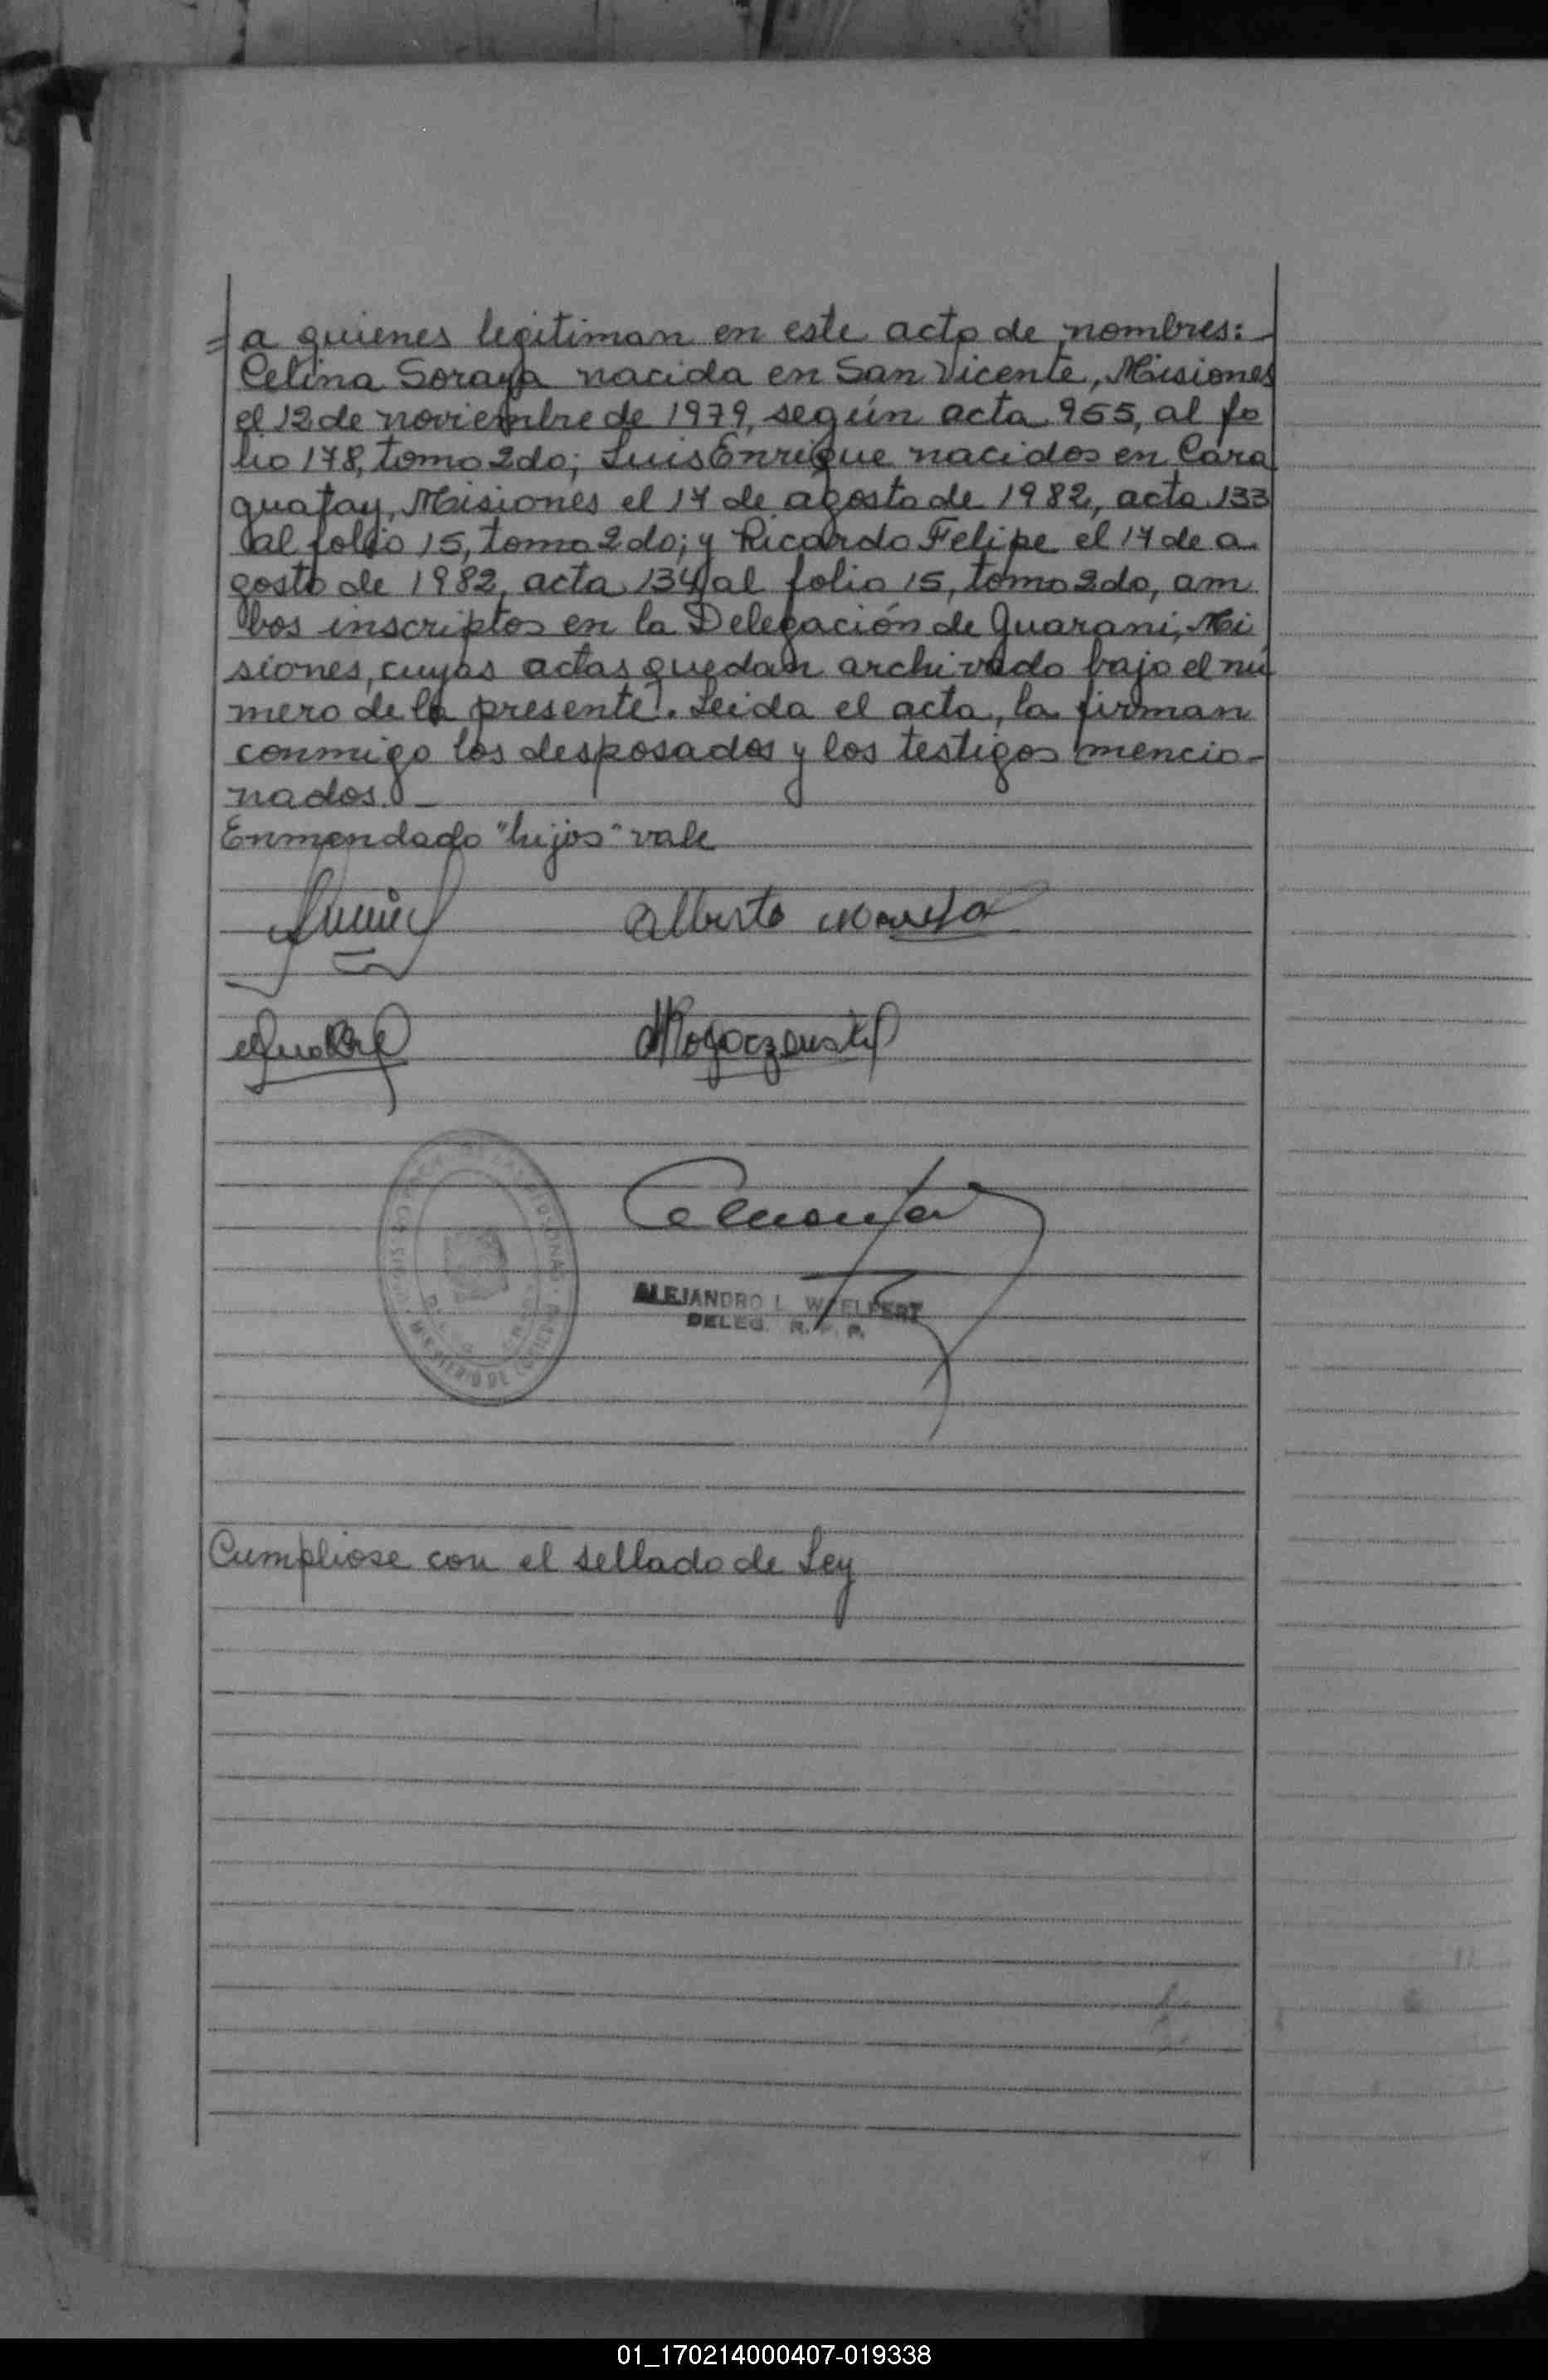 = a quienes legitiman en este acto de nombres:
Celina Soraya nacida en San Vicente, Misiones
el 12 de noviembre de 1979, según acta 955, al fo
lio 178, tomo 2do; Luis Enrique nacidos en Cara
guatay, Misiones el 17 de agosto de 1982, acta 133
al folio 15, tomo 2do; y Ricardo Felipe el 17 de a
gosto de 1982, acta 134 al folio 15, tomo 2do, am
bos inscriptos en la Delegación de Guarani, Mi
siones, cuyas actas quedan archivado bajo el nú
mero de la presente. Leida el acta, la firman
conmigo los desposados y los testigos mencio-
nados.-
Enmendado "hijos" vale
Alberto
ALEJANDRO L.
DELEG. R. P. P.
MINISTERIO DE
Cumpliose con el sellado de Ley
01_170214000407-019338